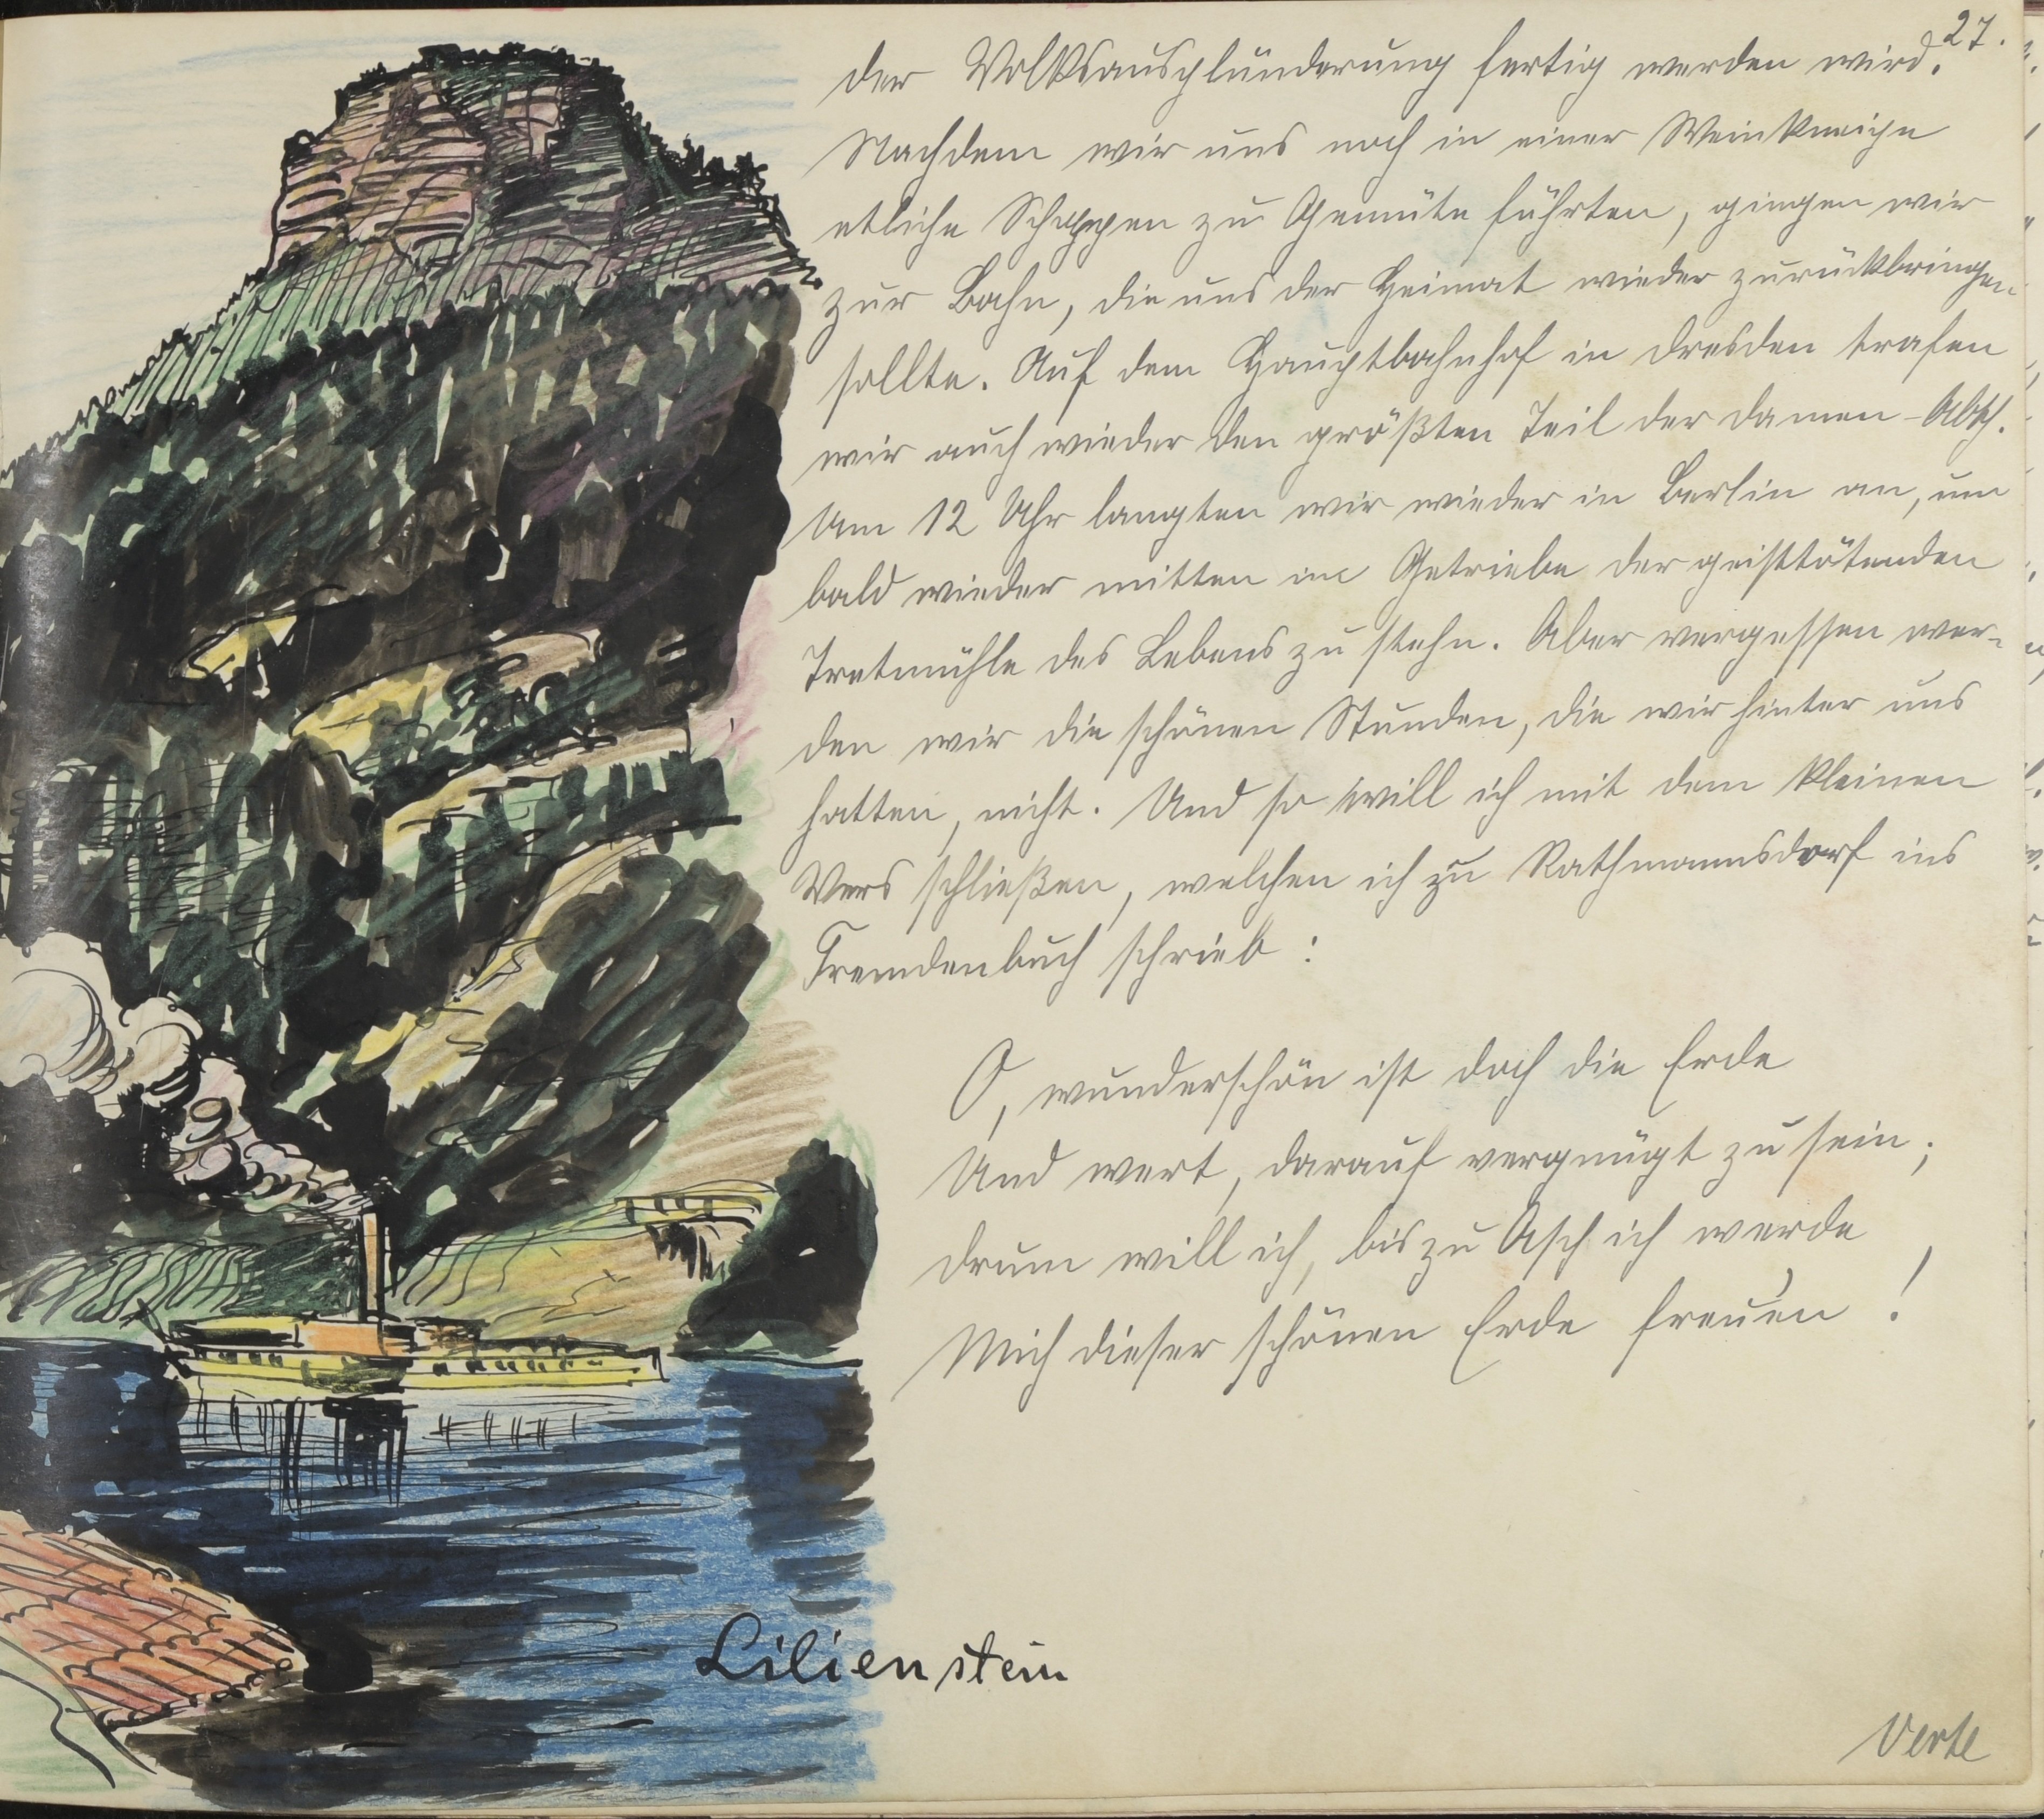 27.
der Volksausplünderung fertig werden wird.
Nachdem wir uns noch in einer Weinkneipe
etliche Schoppen zu Gemüte führten, gingen wir
zur Bahn, die uns der Heimat wieder zurückbringen
sollte. Auf dem Hauptbahnhof in Dresden trafen
wir auch wieder den größten Teil der Damen-Abth.
Um 12 Uhr langten wir wieder in Berlin an, um
bald wieder mitten im Getriebe der geisttötenden
Tretmühle des Lebens zu stehn. Aber vergessen wer-
den wir die schönen Stunden, die wir hinter uns
hatten, nicht. Und so will ich mit dem kleinen
Vers schließen, welchen ich zu Rathmannsdorf ins
Fremdenbuch schrieb:
O, wunderschön ist doch die Erde
Und wert, darauf vergnügt zu sein;
Drum will ich, bis zu Asch ich werde
Mich dieser schönen Erde freu'en!
Lilienstein
Verte